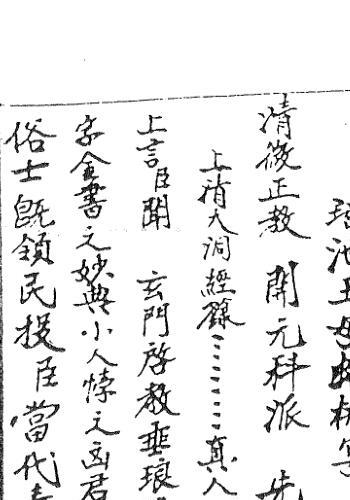 瑤池王母
清微正教 開元科派 先
上清大洞經籙⋯⋯⋯真人
上言臣聞 玄門啓教垂琅
字金書之妙典小人悖之凶君
俗士既領民投臣當代